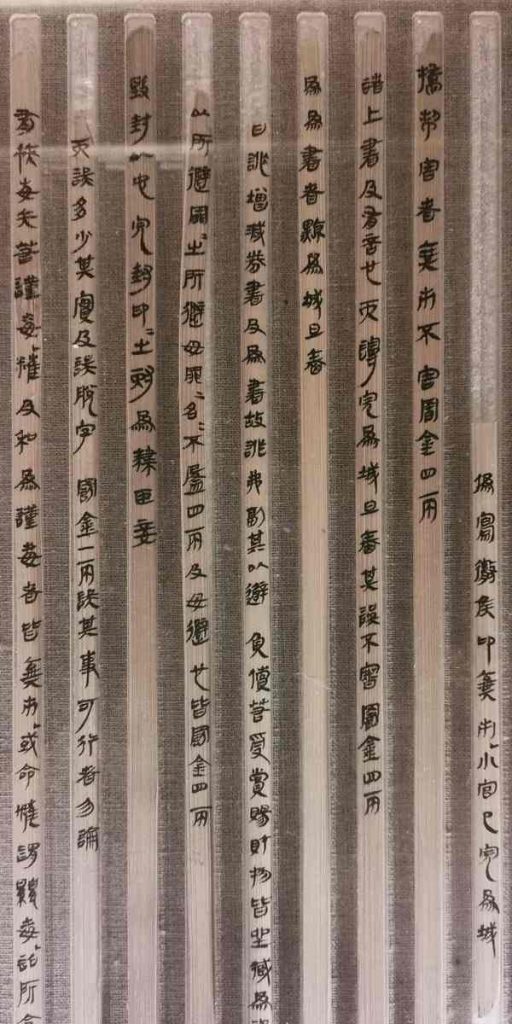 偽寫徹侯印棄市小官印完為城
撟制害者棄市不害罰金四兩
諸上書及有言也而謾完為城旦舂其誤不審罰金四兩
為偽書者黥為城旦舂
詐增減券書及為書故詐弗副其以避負償若受賞賜財物皆坐臧為
以所避罪=之所避毋罪=名=不盈四兩及毋避也皆罰金四兩
毀封以它完封印=之耐為隸臣妾
而誤多少其實及誤脫字罰金一兩誤其事可行者勿論
有挾毒矢若謹毒糴及和為謹毒者皆棄市或命糴謂鼷毒詔所令